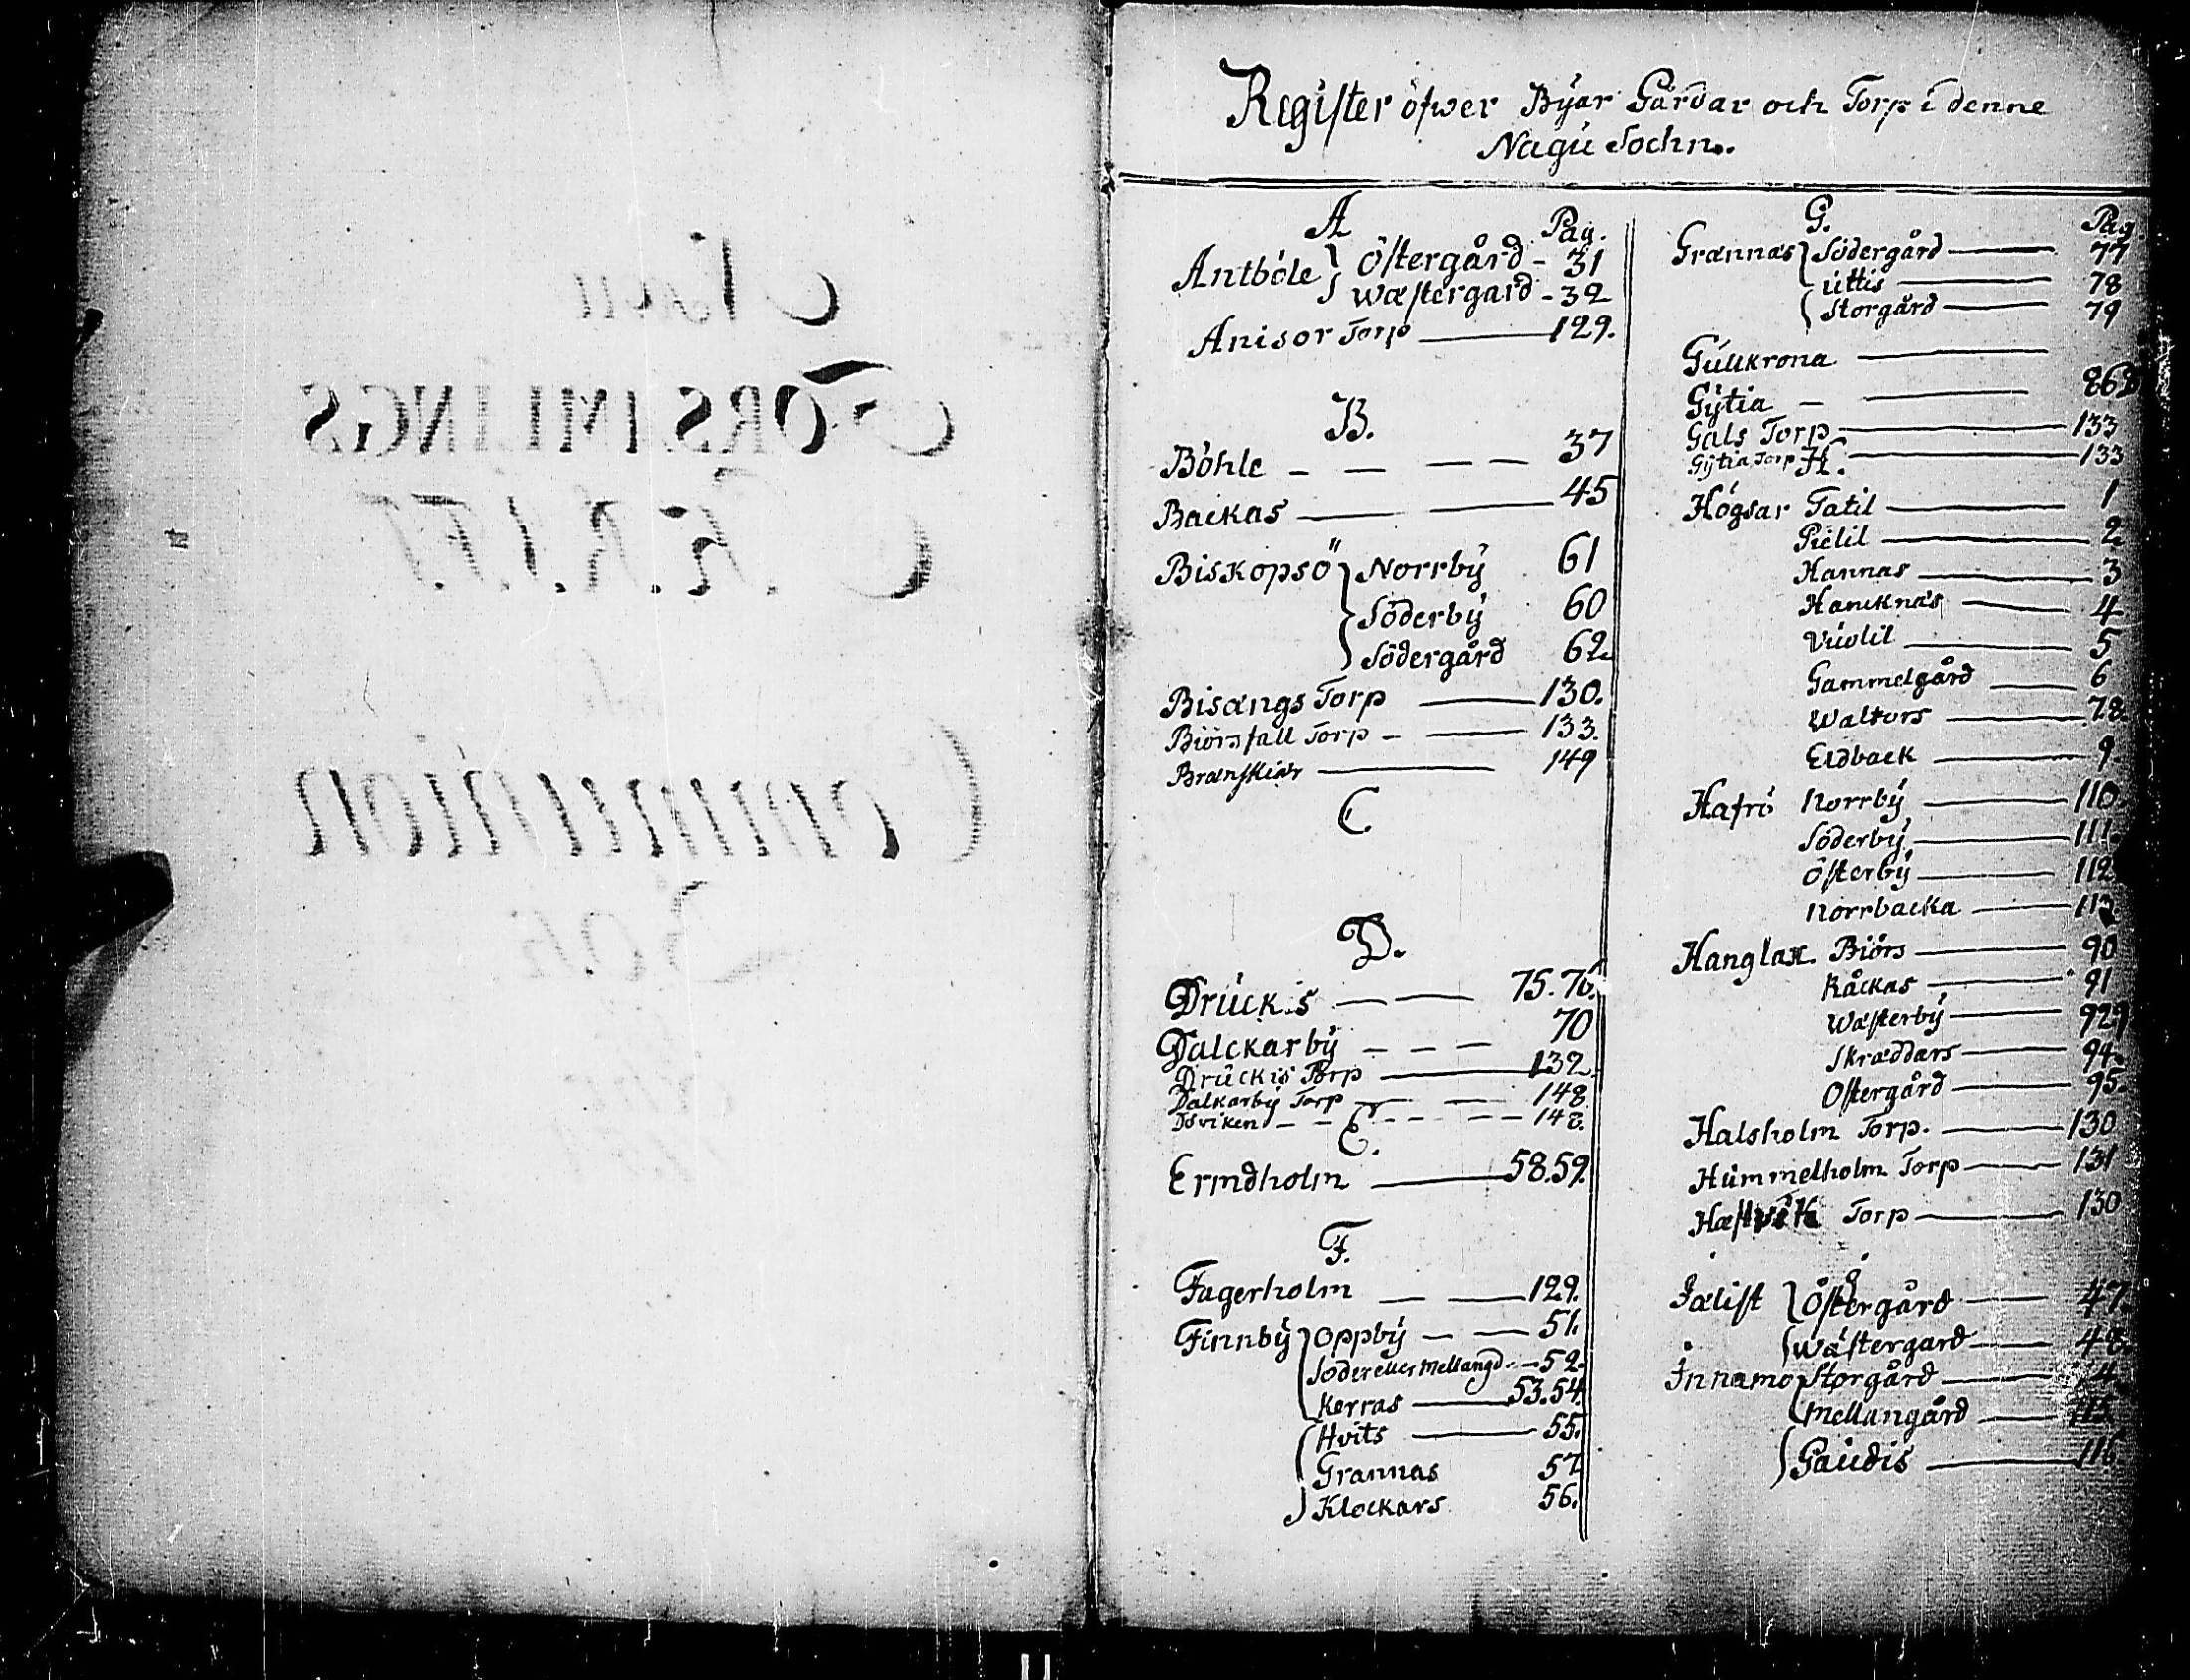 FÖRSAMLINGS
SKRIFT
Communion
BOK
Register öfwer Byar Gårdar och Torp i denne
Nagu Sochn.
A Pag.
Antböle Östergård - 31
Wæstergard - 32
Anisor Torp 129.
B.
Böhle 37
Backas 45
Biskopsö Norrby 61
Söderby 60
Södergård 62
Bisængs Torp 130.
Biörsfall Torp 133.
Brænskiær 149
C.
D.
Druckis 75.76.
Dalckarby 70
Druckis Torp 132
Dalkarby Torp 148
Dsviken 148.
E.
Ermdholm 58.59.
F.
Fagerholm 129.
Finnby Oppby 51.
Söder eller Mellangd. 52.
Kerras 53.54
Hvits 55.
Grannas 57
Klockars 56.
G. Pag.
Grannäs Södergård 77
Uttis 78
Storgård 79
Gullkrona
Gytia 86
Gals Torp 133
Gytia Torp 133
H.
Högsar Tatil 1
Pielil 2
Hannas 3
Hancknäs 4
Vuolil 5
Gammelgård 6
Waltors 7.8.
Eidback 9
Hafrö Norrby 110
Söderby 111.
Österby 112
Norrbacka 113.
Hanglax. Biörs 90
Råckas 91
Wæsterby 929
Skræddars 94.
Ostergård 95.
Halsholm Torp. 130
Hummelholm Torp 131
Hæstvik Torp 130
Jælist Östergård 47.
Wästergard 48.
Innamo Storgård
Mellangård 115.
Gaudis 116